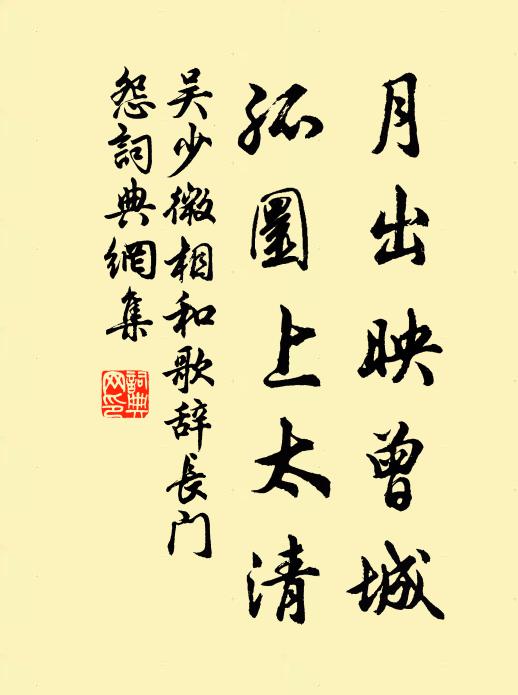 月出映曾城
孤圓上太清
吴少微相和歌辞長门
怨詞典網集
詞典网印